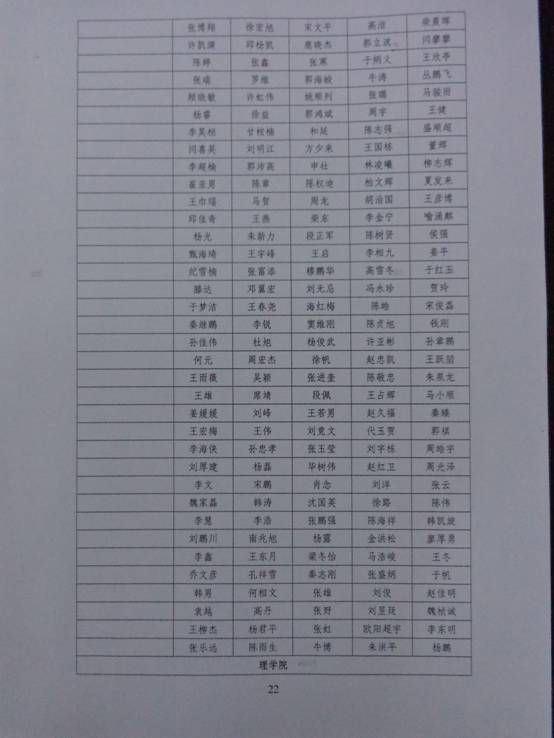 张博翔 徐宏旭 宋文平 高洁 荣晨辉
许凯渊 邱杨凯 鹿晓杰 郭立波 闫攀攀
陈婷 张鑫 张寒 于炳义 王欣亭
张端 罗维 郭海蛟 牛涛 丛鹏飞
顾晓敏 许虹伟 姚顺列 张璐 马骏雨
杨睿 徐益 郭鸿斌 周宇 王健
李昊桓 甘桂楠 和延 陈志强 盛顺超
闫喜英 刘明江 方少来 王国栋 董辉
李超楠 郭沛高 申壮 林凌曦 柳志辉
崔亚男 陈章 陈权迪 柏文辉 夏发来
王巾瑶 马贺 周龙 胡治国 王彦博
邱佳奇 王燕 柴东 李金宁 喻通麒
杨光 朱新力 段正军 陈树贤 侯强
甄海琦 王宇峰 王启 李相九 姜平
纪雪楠 张富添 穆鹏华 高雪冬 于红玉
滕达 邓翼宏 刘无忌 冯永珍 贺玲
于梦洁 王春尧 海红梅 陈皓 宋俊磊
秦继鹏 李锐 窦维刚 陈贞旭 钱刚
孙佳伟 杜旭 杨俊武 许亚彬 孙章鹏
何元 周宏杰 徐帆 赵忠凯 王跃堃
王雨薇 吴颖 张进奎 陈敬忠 朱泉龙
王雄 席靖 段佩 王占辉 马小顺
姜媛媛 刘峰 王若男 赵久福 秦臻
王宏梅 王伟 刘竟文 代玉贺 郭祺
李海侠 孙忠孝 张玉莹 刘宇栋 周皓宇
刘厚建 杨磊 华树伟 赵红卫 周光泽
李文 宋鹏 肖念 刘洋 张云
魏家磊 韩涛 沈国英 徐路 陈伟
李慧 李浩 张鹏强 陈海祥 韩凯旋
刘鹏川 南兆旭 杨露 金洪松 廖厚勇
李鑫 王东月 梁冬怡 马浩峻 王冬
乔文彦 孔祥雪 秦志刚 张盛炳 于帆
韩男 何相文 张雄 刘俊 赵佳明
袁越 高丹 张野 刘昱廷 魏桢诚
王柳杰 杨君平 张虹 欧阳超宇 李东明
张乐远 陈雨生 牛博 朱洪平 杨鹏
理学院
22